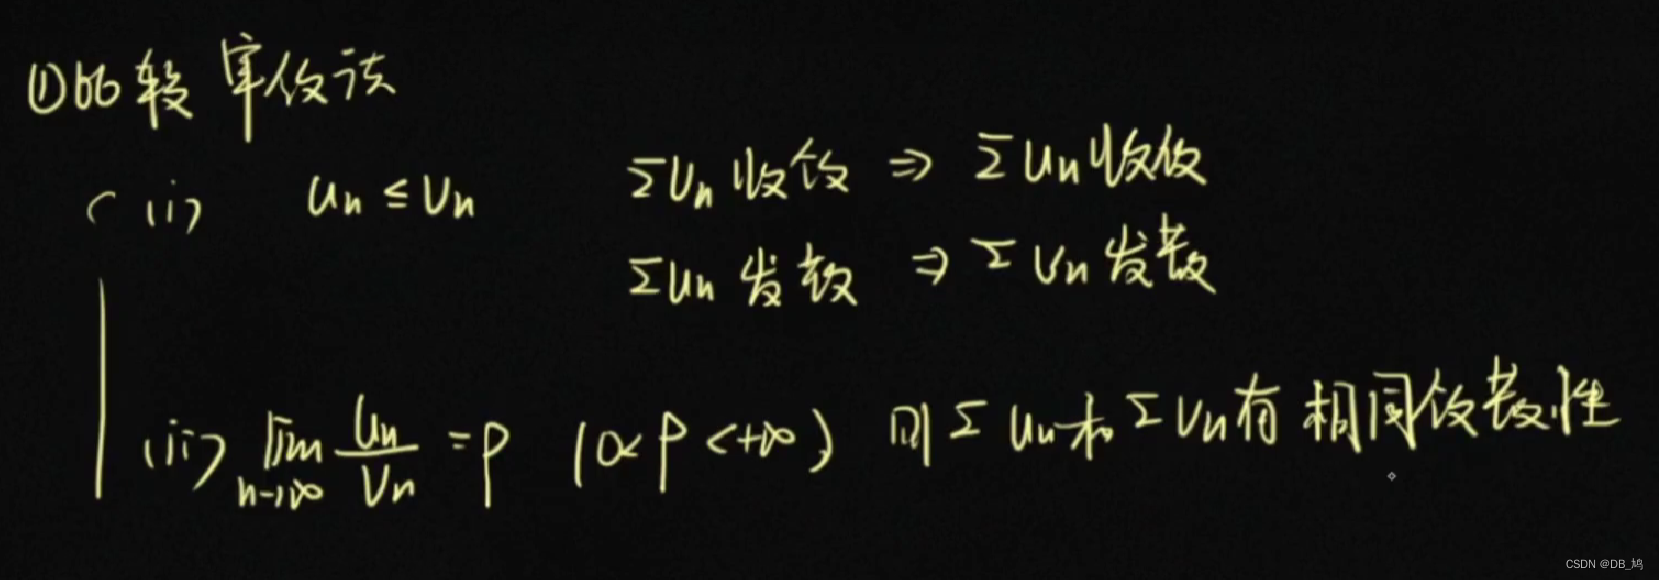 ①比较审敛法
(i) un ≤ vn Σvn 收敛 ⇒ Σun 收敛
Σun 发散 ⇒ Σvn 发散
(ii) lim n→∞ un/vn = ρ (0<ρ<+∞) 则Σun和Σvn有相同敛散性
CSDN @DB_鸠